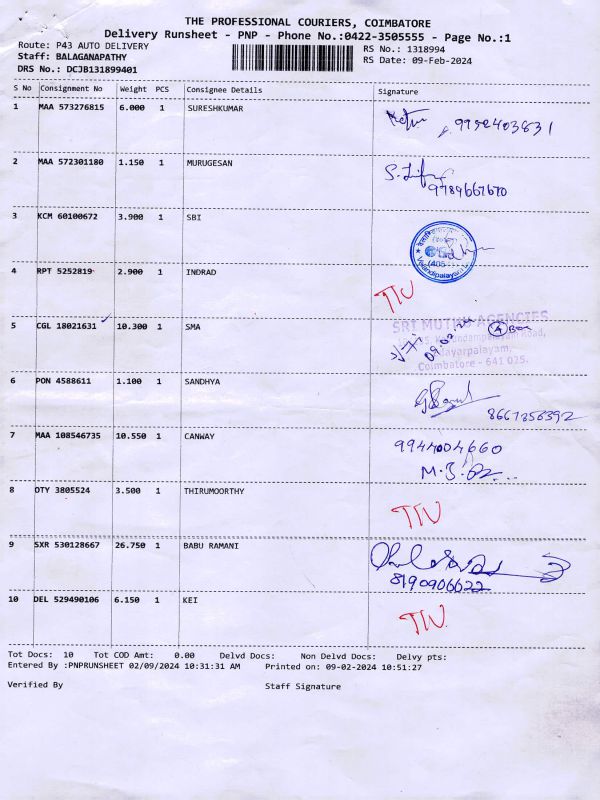 THE PROFESSIONAL COURIERS, COIMBATORE
Delivery Runsheet - PNP - Phone No.:0422-3505555 - Page No.:1
Route: P43 AUTO DELIVERY
RS No.: 1318994
Staff: BALAGANAPATHY
RS Date: 09-Feb-2024
DRS No.: DCJB131899401
S No Consignment No Weight PCS Consignee Details Signature
1 MAA 573276815 6.000 1 SURESHKUMAR
2 MAA 572301180 1.150 1 MURUGESAN
9789667670
3 KCM 60100672 3.900 1 SBI
4 RPT 5252819 2.900 1 INDRAD
TTV
5 CGL 18021631 10.300 1 SMA
SRI MUTHU AGENCIES
Coimbatore - 641 025.
6 PON 4588611 1.100 1 SANDHYA
8667356392
7 MAA 108546735 10.550 1 CANWAY
9944004660
8 OTY 3805524 3.500 1 THIRUMOORTHY
TTV
9 SXR 530128667 26.750 1 BABU RAMANI
8190906622
10 DEL 529490106 6.150 1 KEI
TTV
Tot Docs: 10 Tot COD Amt: 0.00 Delvd Docs: Non Delvd Docs: Delvy pts:
Entered By :PNPRUNSHEET 02/09/2024 10:31:31 AM Printed on: 09-02-2024 10:51:27
Verified By Staff Signature